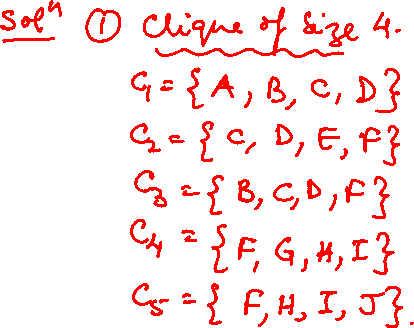 Solⁿ ① Clique of Size 4.
C₁ = {A, B, C, D}
C₂ = {C, D, E, F}
C₃ = {B, C, D, F}
C₄ = {F, G, H, I}
C₅ = {F, H, I, J}.